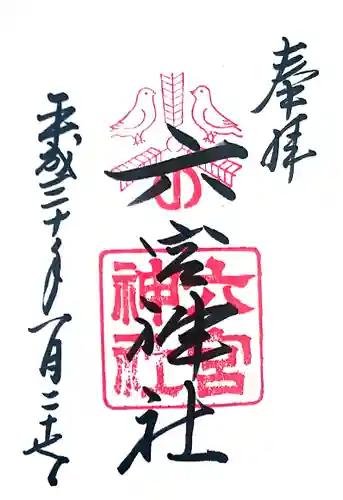 奉拝
六宮神社
六宮神社
平成三十年一月二十七日